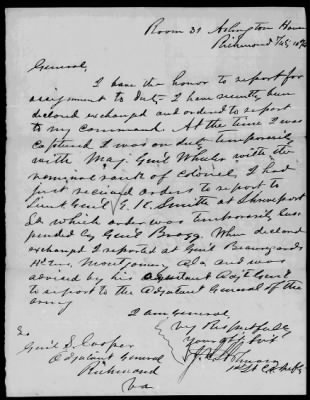 Room 31 Arlington House
Richmond
General,
I have the honor to report for
assignment to duty. I have recently been
declared exchanged and ordered to report
to my command. At the time I was
captured I was on duty temporarily
with Maj. Genl Wheeler with the
nominal rank of Colonel, I had
just recieved orders to report to
Lieut Genl E. K. Smith at Shreveport
La which order was temporarily sus-
pended by Genl Bragg. When declared
exchanged I reported at Genl Beauregards
Hd Qrs, Montgomery, Ala and was
advised by his Adjt Genl
to report to the Adjutant General of the
army
I am General
Very Respectfully
Your obt svt
To
Genl S. Cooper
Adjutant General
Richmond
Va